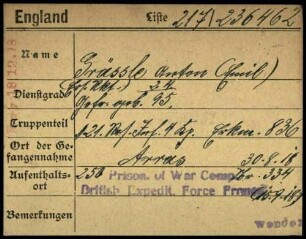 England Liste 217/236462
Name Grässle Anton (Emil)
Dienstgrad
Gefr. geb. 95.
Truppenteil 4 Kp. Erkm. 836
Ort der Ge-
fangennahme Arras 30-8-18
Aufenthalts-
ort 256 Prison. of War Comp. Nr. 334
British Expedit. Force France
Bemerkungen